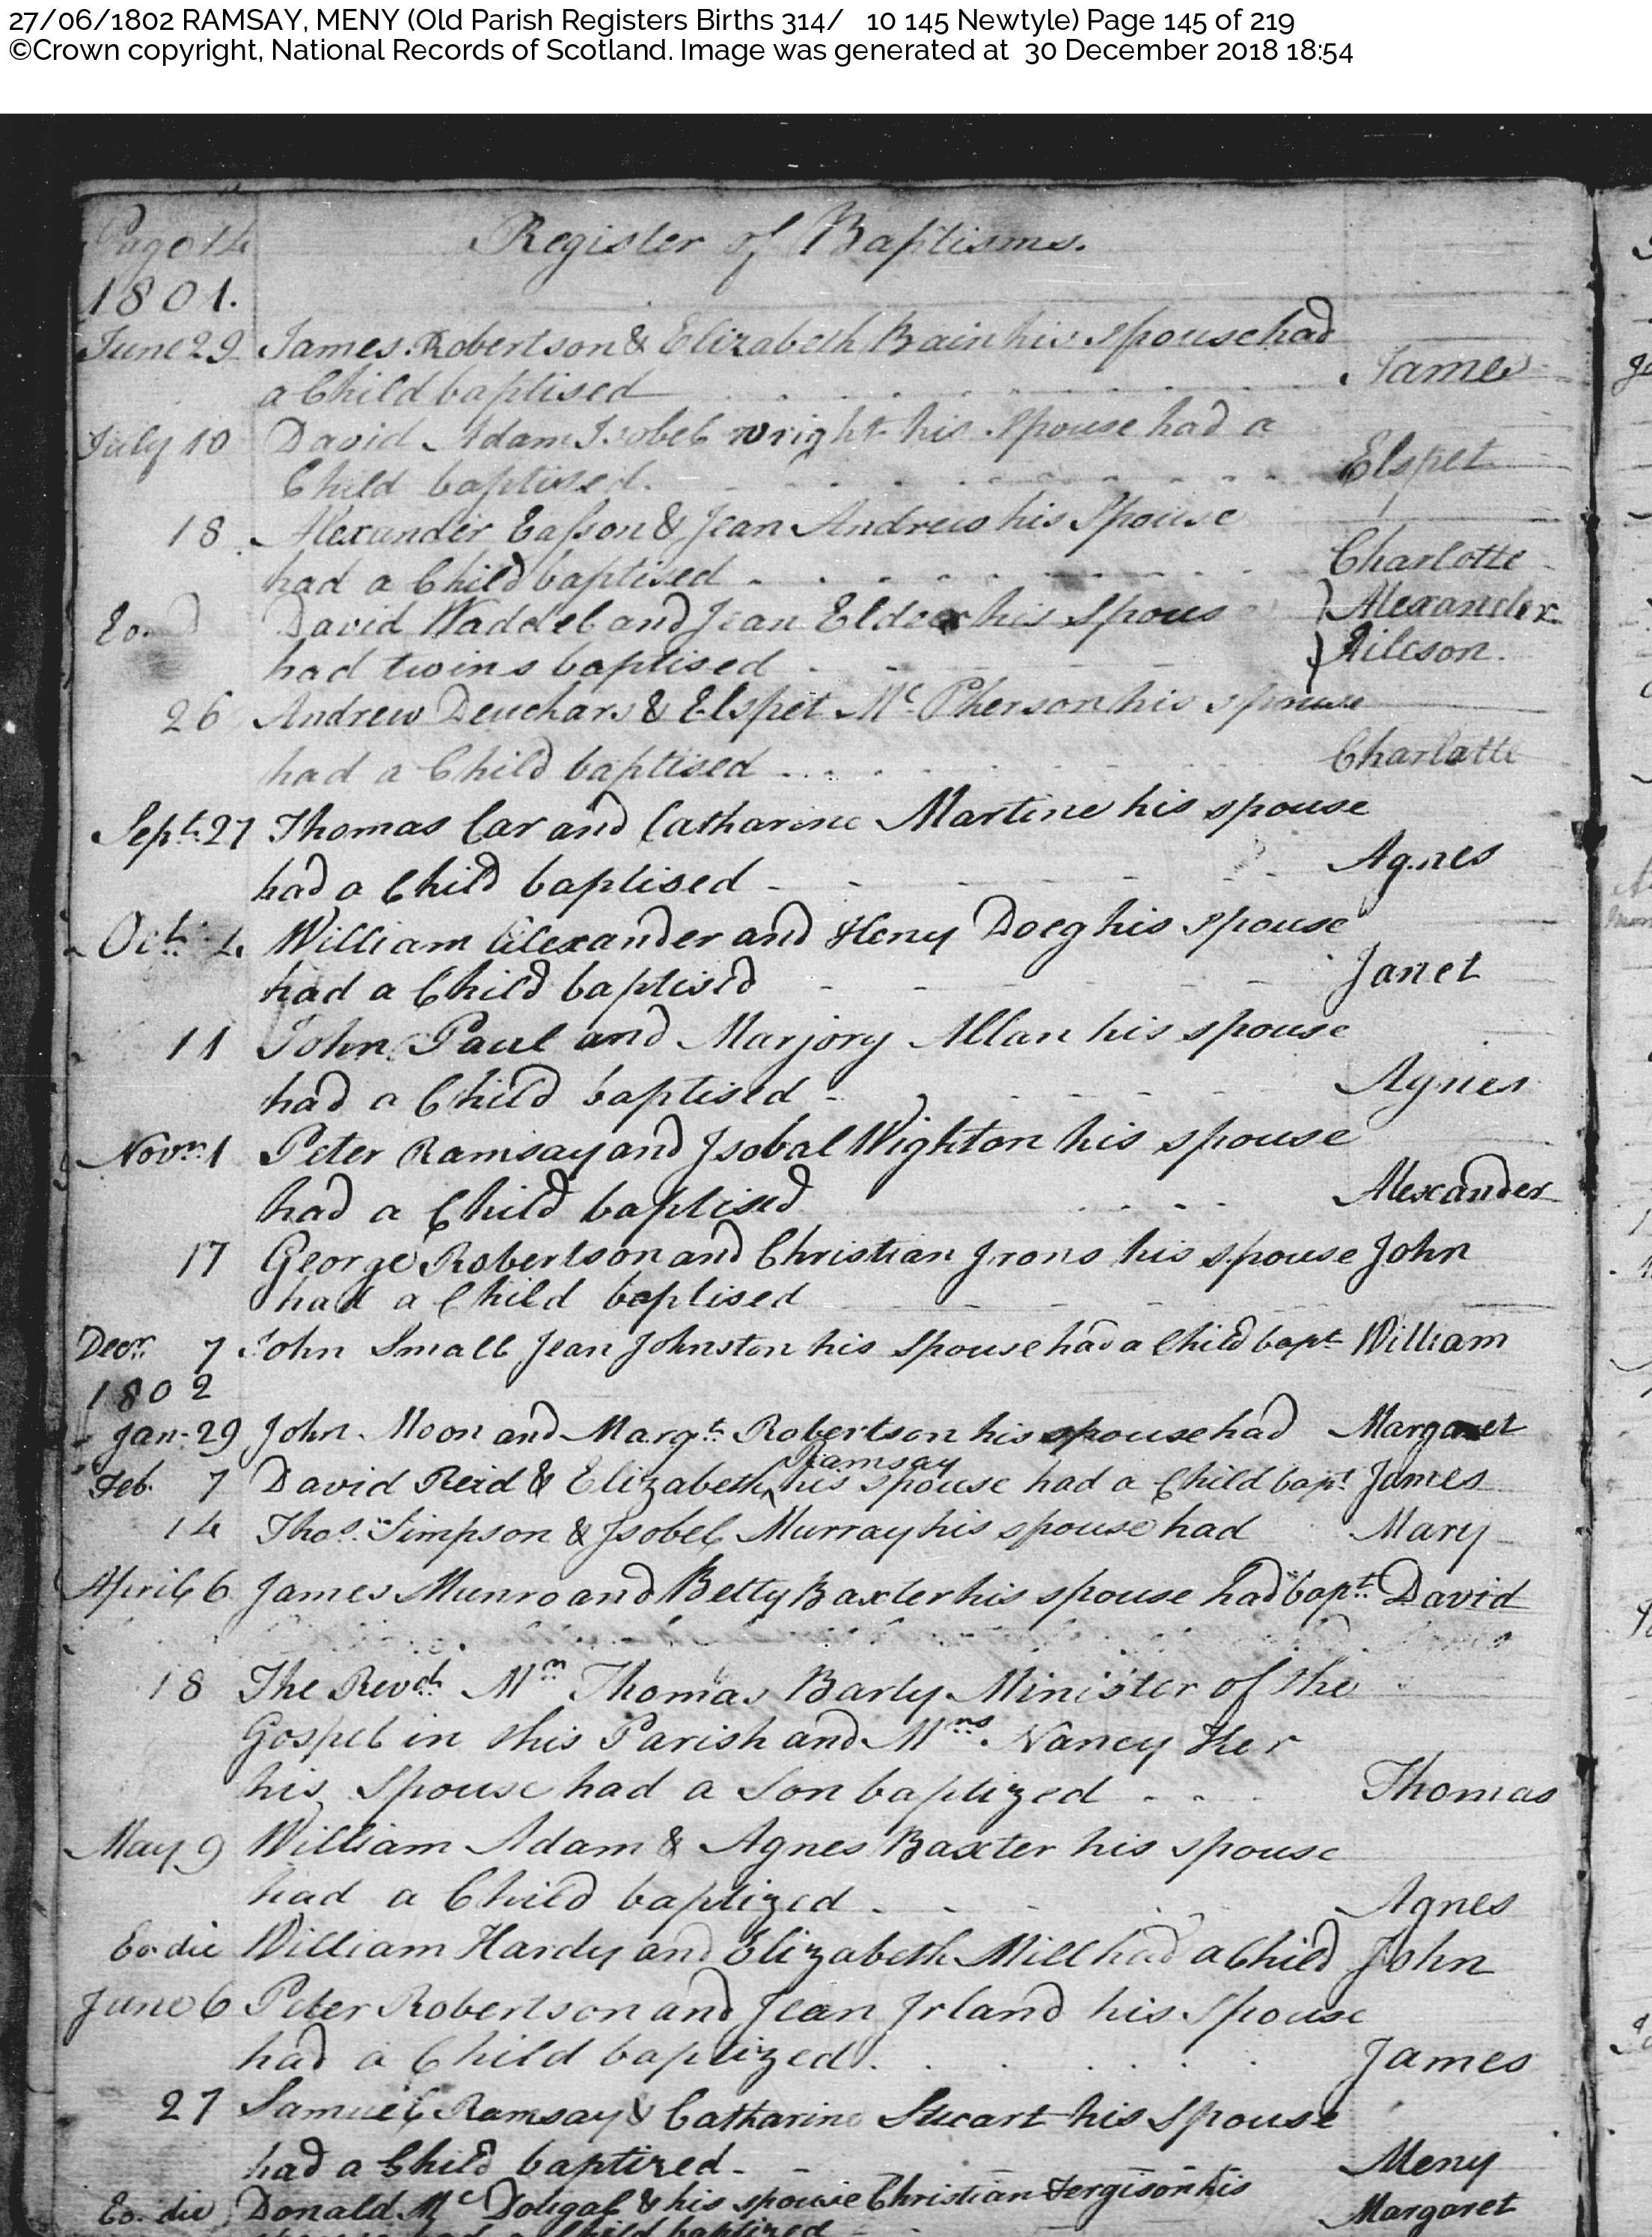 27/06/1802 RAMSAY, MENY (Old Parish Registers Births 314/ 10 145 Newtyle) Page 145 of 219
©Crown copyright, National Records of Scotland. Image was generated at 30 December 2018 18:54
Page 14 Register of Baptisms.
1801.
June 29 James Robertson & Elizabeth Bain his spouse had
a Child baptised James
July 10 David Adam Isobel wright his spouse had a
Child baptised. Elspet
18 Alexander Easson & Jean Andrew his Spouse
had a Child baptised Charlotte
Eo. David Waddel and Jean Elder his Spous Alexander
had twins baptised
26 Andrew Deuchars & Elspet Mc Pherson his spouse
had a Child baptised Charlotte
Sept. 27 Thomas Car and Catharine Martine his spouse
had a Child baptised Agnes
Octr. 4 William Alexander and Heny Doeg his spouse
had a Child baptised Janet
11 John Paul and Marjory Allan his spouse
had a Child baptised Agnes
Novr. 1 Peter Ramsay and Isobal Wighton his spouse
had a Child baptised Alexander
17 George Robertson and Christian Irons his spouse John
had a Child baptised
Decr. 7 John Small Jean Johnston his spouse had a Child bapt William
1802
Jan. 29 John Moon and Margt. Robertson his spouse had Margaret
Ramsay
Feb. 7 David Reid & Elizabeth ^ his spouse had a Child bapt James
14 Thos. Simpson & Isobel Murray his spouse had Mary
April 6 James Munro and Betty Baxter his spouse had bapt. David
18 The Revd. Mr. Thomas Barty Minister of the
Gospel in this Parish and Mrs. Nancy Ker
his Spouse had a Son baptized Thomas
May 9 William Adam & Agnes Baxter his spouse
had a Child baptized Agnes
Eo. die William Hardy and Elizabeth Mill had a Child John
June 6 Peter Robertson and Jean Irland his Spouse
had a Child baptized. James
27 Samuel Ramsay & Catharine Stuart his Spouse
had a Child baptized. Meny
Eo. die Donald Mc Dougal & his spouse Christian Fergison his Margaret
spouse had a Child baptized